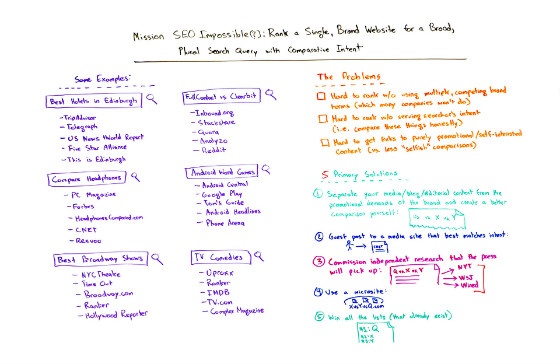 Mission SEO Impossible(?): Rank a Single, Brand Website for a Broad,
Plural Search Query with Comparative Intent
Some Examples:
Best Hotels in Edinburgh
- TripAdvisor
- Telegraph
- US News World Report
- Five Star Alliance
- This is Edinburgh
Compare Headphones
- PC Magazine
- Forbes
- HeadphonesCompared.com
- CNET
- Reevoo
Best Broadway Shows
- NYCTheatre
- Time Out
- Broadway.com
- Ranker
- Hollywood Reporter
FullContact vs Clearbit
- Inbound.org
- Stackshare
- Quora
- Analyzo
- Reddit
Android Word Games
- Android Central
- Google Play
- Tom's Guide
- Android Headlines
- Phone Arena
TV Comedies
- Uproxx
- Ranker
- IMDB
- TV.com
- Complex Magazine
The Problems
Hard to rank w/o using multiple, competing brand
terms (which many companies won't do)
Hard to rank w/o serving searcher's intent
(i.e. compare these things honestly)
Hard to get links to purely promotional/self-interested
content (vs less "selfish" comparisons)
5 Primary Solutions
① Separate your media/blog/editorial content from the
promotional demands of the brand and create a better
comparison yourself:
② Guest post to a media site that best matches intent:
③ Commission independent research that the press
will pick up:
Q vs X vs Y
NYT
WSJ
Wired
④ Use a microsite:
XvsYvsQ.com
⑤ Win all the lists (that already exist)
#1: Q
#2: X
#3: Y